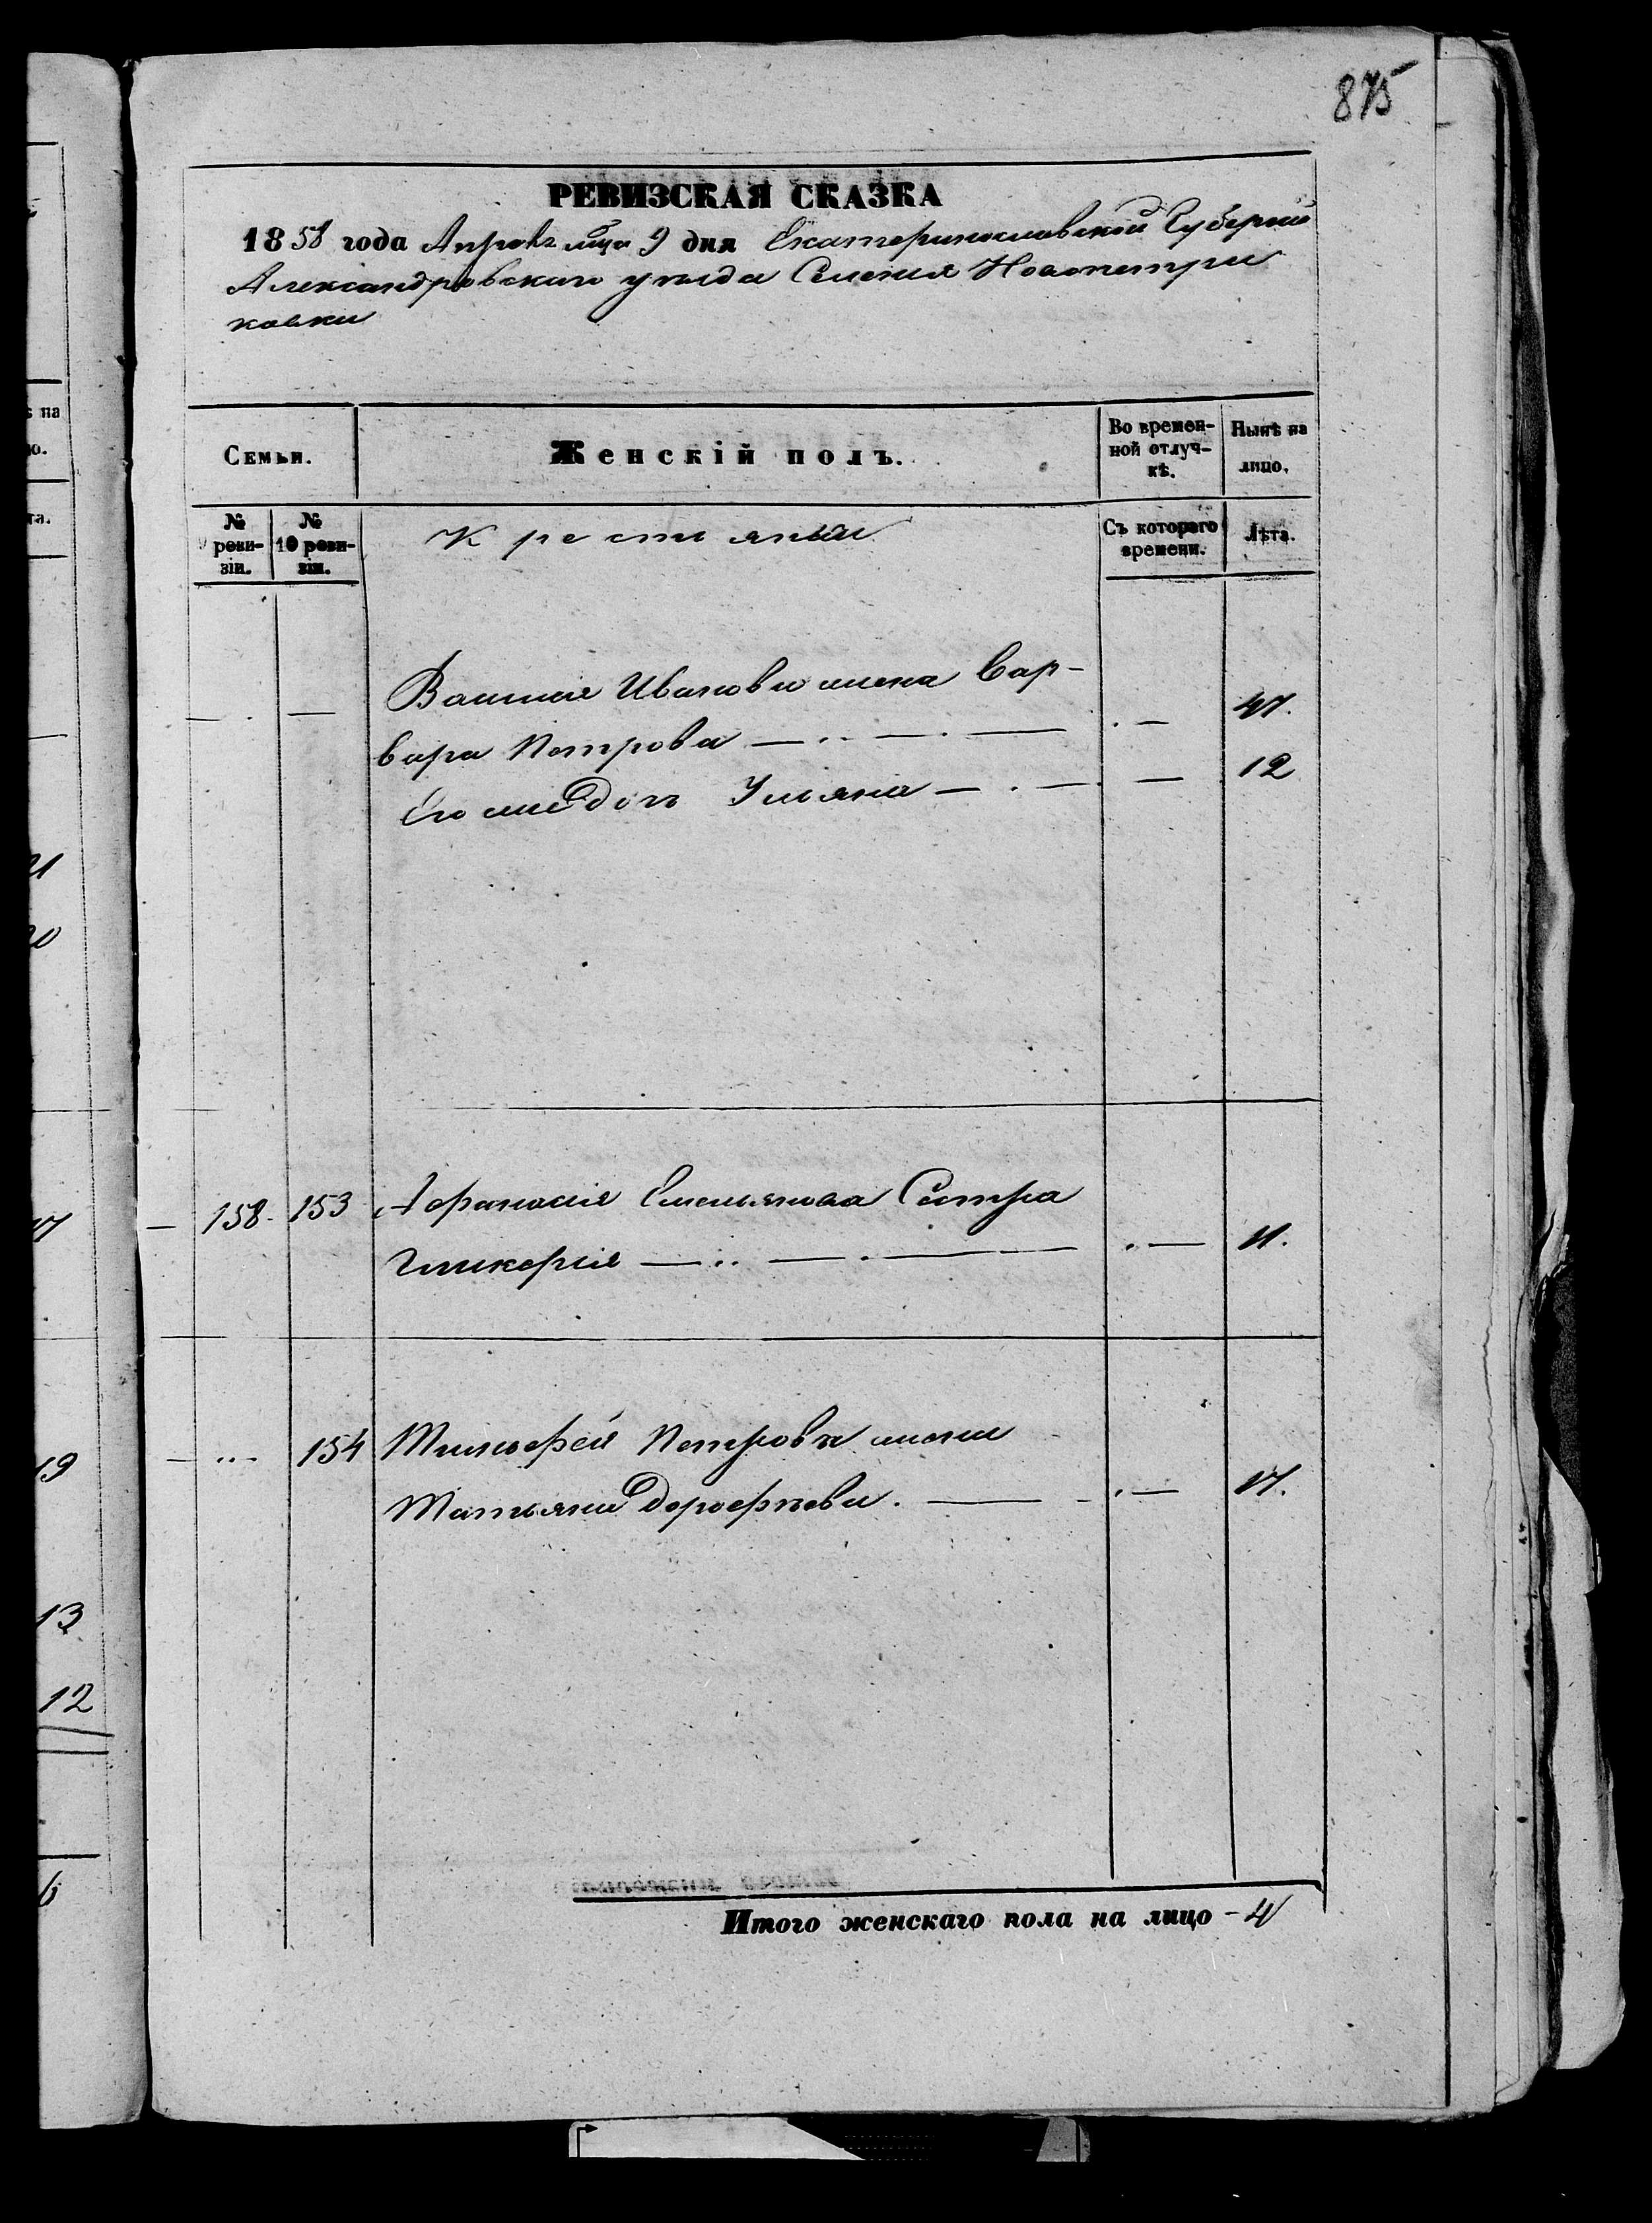 875
РЕВИЗСКАЯ СКАЗКА
1858 года Апреля мца 9 дня Екатеринославской Губернии
Александровскаго уезда Селения Новопетри
ковки
Семьи.
Женскій полъ.
Во времен-
ной отлуч-
кѣ.
Нынѣ на
лицо.
№
9 реви-
зіи.
№
10 реви-
зіи.
Крестьяне
Съ котораго
времени.
Лѣта.
Василія Иванова жена Вар-
вара Петрова 47.
Его же дочь Ульяна 12
158. 153 Афанасія Емельянова Сестра
Гликерія 11.
154 Тимофея Петрова жена
Татьяна Дорофѣева. 17.
Итого женскаго пола на лицо - 4
на
о.
та.
21
20
17
19
13
12
6